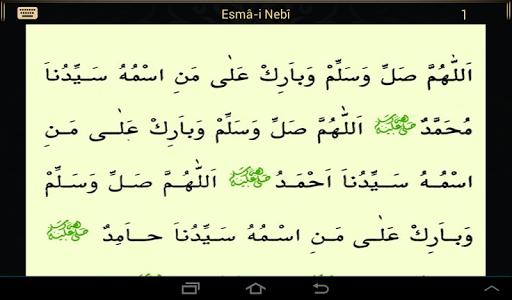 Esmâ-i Nebî 1
اَللّٰهُمَّ صَلِّ وَسَلِّمْ وَباَرِكْ عَلٰى مَنِ اسْمُهُ سَيِّدُناَ
مُحَمَّدٌ ﷺ اَللّٰهُمَّ صَلِّ وَسَلِّمْ وَباَرِكْ عَلٰى مَنِ
اسْمُهُ سَيِّدُناَ اَحْمَدُ ﷺ اَللّٰهُمَّ صَلِّ وَسَلِّمْ
وَباَرِكْ عَلٰى مَنِ اسْمُهُ سَيِّدُناَ حاَمِدٌ ﷺ